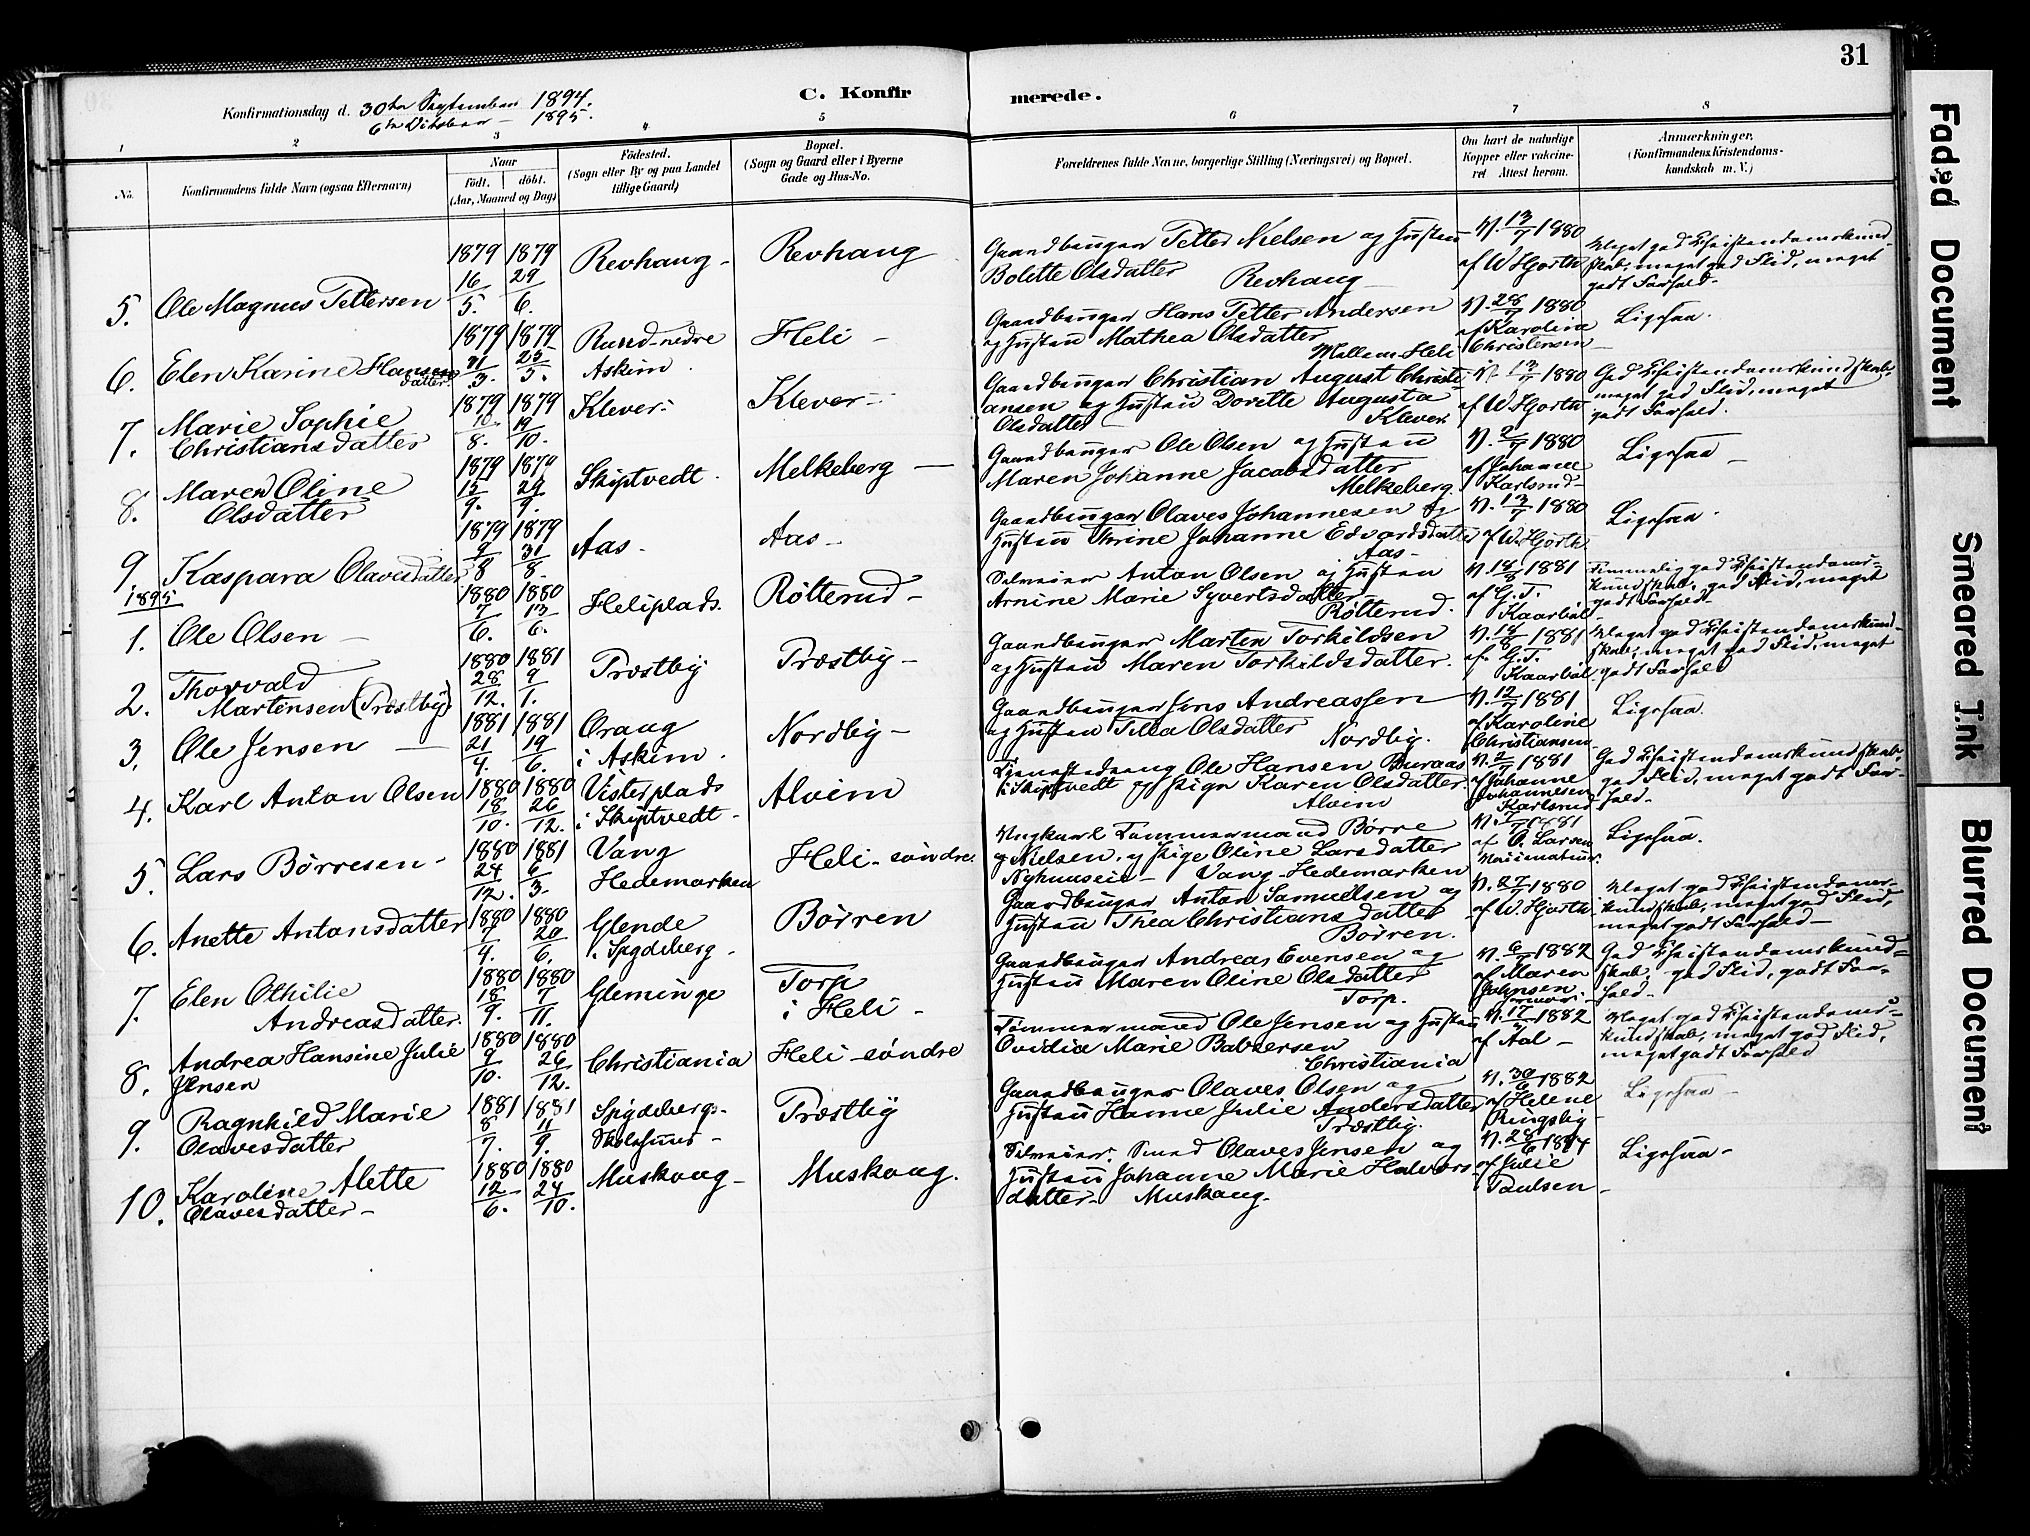 31
C. Konfirmerede.
Konfirmationsdag d. 30te September 1894.
6te Oktober — 1895.
1 2 3 4 5 6 7 8
No.
Konfirmandens fulde Navn (ogsaa Efternavn)
Naar
födt. döbt.
(Aar, Maaned og Dag)
Födested.
(Sogn eller By og paa Landet
tillige Gaard)
Bopæl.
(Sogn og Gaard eller i Byerne
Gade og Hus-No.
Forældrenes fulde Navne, borgerlige Stilling (Næringsvei) og Bopæl.
Om havt de naturlige
Kopper eller vakcine-
ret Attest herom.
Anmærkninger.
(Konfirmandens Kristendoms-
kundskab m. V.)
5. Ole Magnus Pettersen
1879 16/5. 1879 29/6.
Revhaug -
Revhaug
Gaardbruger Petter Nielsen og Hustru
Bolette Olsdatter
Revhaug
V. 13/7 1880
af W Hjorth
Meget god Christendomskund-
skab, meget god Flid, meget
godt Forhold.
6. Elen Karine Hansen
datter.
1879 1879 23/5.
Rund-nedre
Askim.
Heli -
Gaardbruger Hans Petter Andersen
og Hustru Mathea Olsdatter
Mellem-Heli
V. 28/7 1880
af Karoline
Christensen
Ligesaa.
7. Marie Sophie
Christiansdatter
1879 10/8. 1879 19/10.
Klever
Klever
Gaardbruger Christian August Christi-
ansen og Hustru Dorette Augusta
Olsdatter Klever
V. 13/7 1880
af W Hjorth
God Christendomskundskab,
meget god Flid, meget
godt Forhold.
8. Maren Oline
Olsdatter
1879 15/9. 1879 29/9.
Skiptvedt.
Melkeberg —
Gaardbruger Ole Olsen og Hustru
Maren Johanne Jacobsdatter
Melkeberg.
V. 2/7 1880
af Johanne
Karlsrud
Ligesaa —
9. Kaspara Olavesdatter
1879 9/8 1879 31/8.
Aas -
Aas -
Gaardbruger Olaves Johannesen og
Hustru Thrine Johanne Edvardsdatter
Aas -
V. 13/7 1880
af W. Hjorth.
Ligesaa.
1895
1. Ole Olsen —
1880 7/6. 1880 13/6.
Heliplads.
Rötterud -
Selveier Anton Olsen og Hustru
Arnine Marie Syvertsdatter
Rötterud.
V. 18/8 1881
af G. T.
Kaarböl
Temmelig god Christendoms-
kundskab, god Flid, meget
godt Forhold.
2. Thorvald
Martinsen (Præstby)
1880 28/12. 1881 9/1.
Præstby
Præstby -
Gaardbruger Marten Torkildsen
og Hustru Maren Torkildsdatter.
V. 18/8 1881
af G. T.
Kaarböl
Meget god Christendomskund-
skab, meget god Flid, meget
godt Forhold
3. Ole Jensen —
1881 21/4. 1881 19/6.
Oraug
i Askim.
Nordby -
Gaardbruger Jens Andreassen
og Hustru Tilla Olsdatter
Nordby.
V. 12/7 1881
af Karoline
Christiansen
Ligesaa.
4. Karl Anton Olsen
1880 18/10. 1880 26/12.
Visterplads
i Skiptvedt -
Alvim
Ole Hansen Buraas
i Skiptvedt og Pige Karen Olsdatter.
Alvim
V. 2/7 1881
af Johanne
Johannesen
Karlsrud
God Christendomskundskab,
god Flid, meget godt For-
hold.
5. Lars Börresen -
1880 24/12. 1881 6/3.
Vang
Hedemarken
Heli-söndre.
Ungkarl Tömmermand Börre
Nielsen, og Pige Oline Larsdatter
Nyhuuseie - Vang-Hedemarken
V. 1881
af O. Larsen
Ligesaa.
6. Anette Antonsdatter
1880 7/4. 1880 20/6.
Glende
i Spydeberg -
Börren
Gaardbruger Anton Samuelsen og
Hustru Thea Christiansdatter
Börren.
V. 27/7 1880
af W. Hjorth
Meget god Christendoms-
kundskab, meget god Flid,
meget godt Forhold -
7. Elen Othilie
Andreasdatter.
1880 18/9. 1880 7/11.
Gleminge
Torp
i Heli -
Gaardbruger Andreas Evensen og
Hustru Maren Oline Olsdatter
Torp.
V. 6/7 1882
af Maren
Johnsen
God Christendomskund-
skab, god Flid, godt For-
hold.
8. Andrea Hansine Julie
Jensen
1880 9/10. 1880 26/12.
Christiania
Heli-söndre
Tömmermand Ole Jensen og Hustru
Ovidia Marie Baltzersen
Christiania
V. 17/7 1882
af Aal -
Meget god Christendoms-
kundskab, meget god Flid,
meget godt Forhold
9. Ragnhild Marie
Olavesdatter
1881 8/7. 1881 11/9.
Spydeberg-
Skolehuus -
Præstby
Gaardbruger Olaves Olsen og
Hustru Hanne Julie Andersdatter
Præstby.
V. 30/6 1882
af Helene
Ringsby
Ligesaa -
10. Karoline Alette
Olavesdatter -
1880 12/6. 1880 24/10.
Muskaug -
Muskaug.
Selveier Smed Olaves Jensen og
Hustru Johanne Marie Halvors-
datter - Muskaug.
V. 28/6 1884
af Julie
Paulsen -
Ligesaa -
Faded Document
Smeared Ink
Blurred Document